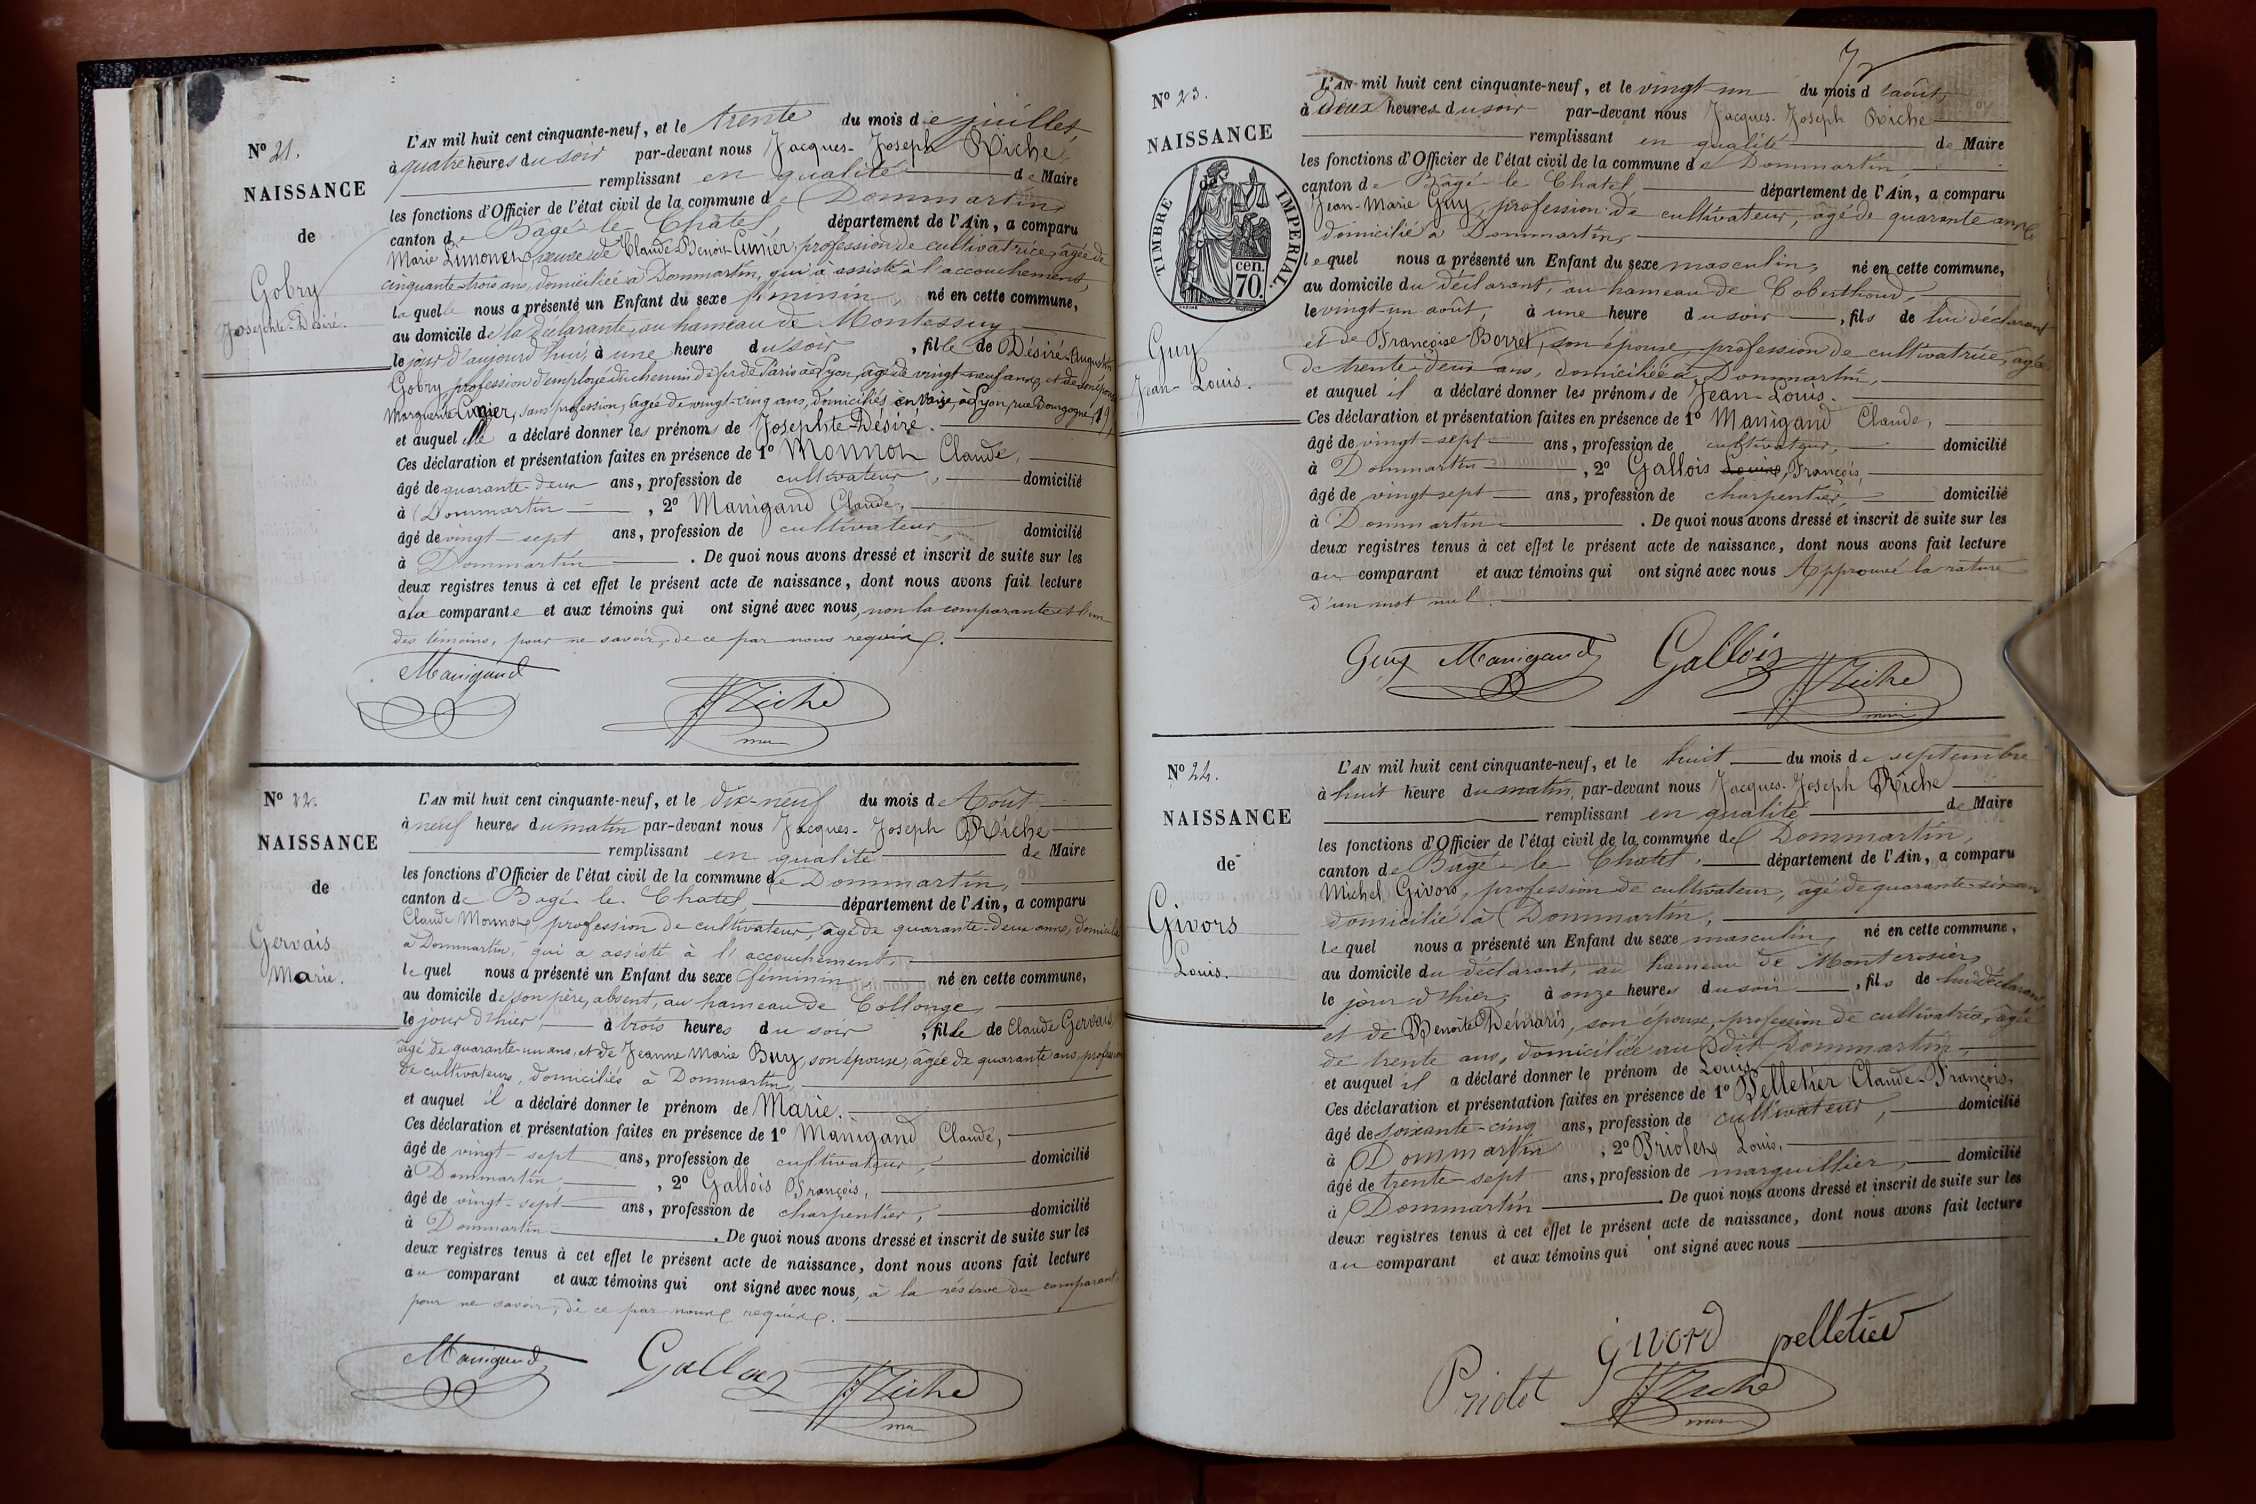 N° 21.
NAISSANCE
de
Gobry
Josephte-Désiré.
L'AN mil huit cent cinquante-neuf, et le trente du mois de juillet,
à quatre heures du soir par-devant nous Jacques-Joseph Riche
remplissant en qualité de Maire
les fonctions d'Officier de l'état civil de la commune de Dommartin,
canton de Bagé-le-Châtel département de l'Ain, a comparu
Marie Limonen, veuve de Claude-Benoit Cunier, profession de cultivatrice, âgée de
cinquante-trois ans, domiciliée à Dommartin, qui a assisté à l'accouchement,
laquelle nous a présenté un Enfant du sexe féminin né en cette commune,
au domicile de la déclarante, au hameau de Montessuy
le jour d'aujourd'hui, à une heure du soir, fille de Désiré-Augustin
Gobry profession d'employé du chemin de fer de Paris à Lyon, âgé de vingt-neuf ans, et de son épouse
Marguerite Cunier, sans profession, âgée de vingt-cinq ans, domiciliés en Vaise, à Lyon, rue Bourgogne,
et auquel elle a déclaré donner les prénoms de Josephte-Désiré.
Ces déclaration et présentation faites en présence de 1° Monnon Claude,
âgé de quarante-deux ans, profession de cultivateur, domicilié
à Dommartin, 2° Manigand Claude,
âgé de vingt-sept ans, profession de cultivateur domicilié
à Dommartin. De quoi nous avons dressé et inscrit de suite sur les
deux registres tenus à cet effet le présent acte de naissance, dont nous avons fait lecture
à la comparante et aux témoins qui ont signé avec nous, non la comparante et l'un
des témoins, pour ne savoir, de ce par nous requis.
Manigand
Riche
N° 22.
NAISSANCE
de
Gervais
Marie.
L'AN mil huit cent cinquante-neuf, et le dix-neuf du mois de Août
à neuf heures du matin par-devant nous Jacques-Joseph Riche
remplissant en qualité de Maire
les fonctions d'Officier de l'état civil de la commune de Dommartin,
canton de Bagé-le-Chatel, département de l'Ain, a comparu
Claude Monnon, profession de cultivateur, âgé de quarante-deux ans, domicilié
à Dommartin, qui a assisté à l'accouchement,
lequel nous a présenté un Enfant du sexe féminin né en cette commune,
au domicile de son père, absent, au hameau de Collonge,
le jour d'hier, à trois heures du soir, fille de Claude Gervais
âgé de quarante-un ans, et de Jeanne Marie Buy, son épouse, âgée de quarante ans, profession
de cultivateurs, domiciliés à Dommartin,
et auquel il a déclaré donner le prénom de Marie.
Ces déclaration et présentation faites en présence de 1° Manigand Claude,
âgé de vingt-sept ans, profession de cultivateur, domicilié
à Dommartin, 2° Gallois François,
âgé de vingt-sept ans, profession de charpentier, domicilié
à Dommartin. De quoi nous avons dressé et inscrit de suite sur les
deux registres tenus à cet effet le présent acte de naissance, dont nous avons fait lecture
au comparant et aux témoins qui ont signé avec nous, à la réserve du comparant
pour ne savoir, de ce par nous requis.
Manigand Gallois Riche
N° 23.
NAISSANCE
de
TIMBRE IMPERIAL.
cen.
70.
Guy
Jean-Louis.
L'AN mil huit cent cinquante-neuf, et le vingt-un du mois d'août,
à deux heures du soir par-devant nous Jacques-Joseph Riche
remplissant en qualité de Maire
les fonctions d'Officier de l'état civil de la commune de Dommartin,
canton de Bagé-le-Chatel, département de l'Ain, a comparu
Jean-Marie Guy, profession de cultivateur, âgé de quarante ans,
domicilié à Dommartin,
lequel nous a présenté un Enfant du sexe masculin, né en cette commune,
au domicile du déclarant, au hameau de Coberthoud,
le vingt-un août, à une heure du soir, fils de lui déclarant
et de Françoise Borret, son épouse, profession de cultivatrice, âgée
de trente-deux ans, domiciliée à Dommartin,
et auquel il a déclaré donner les prénoms de Jean-Louis.
Ces déclaration et présentation faites en présence de 1° Manigand Claude,
âgé de vingt-sept ans, profession de cultivateur, domicilié
à Dommartin, 2° Gallois Louis, François,
âgé de vingt-sept ans, profession de charpentier domicilié
à Dommartin. De quoi nous avons dressé et inscrit de suite sur les
deux registres tenus à cet effet le présent acte de naissance, dont nous avons fait lecture
au comparant et aux témoins qui ont signé avec nous Approuvé la rature
d'un mot nul.
Guy Manigand Gallois Riche
N° 24.
NAISSANCE
de
Givors
Louis.
L'AN mil huit cent cinquante-neuf, et le huit du mois de septembre
à huit heure du matin, par-devant nous Jacques-Joseph Riche
remplissant en qualité de Maire
les fonctions d'Officier de l'état civil de la commune de Dommartin,
canton de Bagé-le-Chatel, département de l'Ain, a comparu
Michel Givors, profession de cultivateur, âgé de quarante-six ans
domicilié à Dommartin,
lequel nous a présenté un Enfant du sexe masculin, né en cette commune,
au domicile du déclarant, au hameau de Montcrosier,
le jour d'hier, à onze heures du soir, fils de lui déclarant
et de Benoîte Démaris, son épouse, profession de cultivatrice, âgée
de trente ans, domiciliée au dit Dommartin,
et auquel il a déclaré donner le prénom de Louis.
Ces déclaration et présentation faites en présence de 1° Pelletier Claude-François,
âgé de soixante-cinq ans, profession de cultivateur, domicilié
à Dommartin, 2° Briolet Louis,
âgé de trente-sept ans, profession de marguillier, domicilié
à Dommartin. De quoi nous avons dressé et inscrit de suite sur les
deux registres tenus à cet effet le présent acte de naissance, dont nous avons fait lecture
au comparant et aux témoins qui ont signé avec nous
Givord pelletier
Priolet Riche